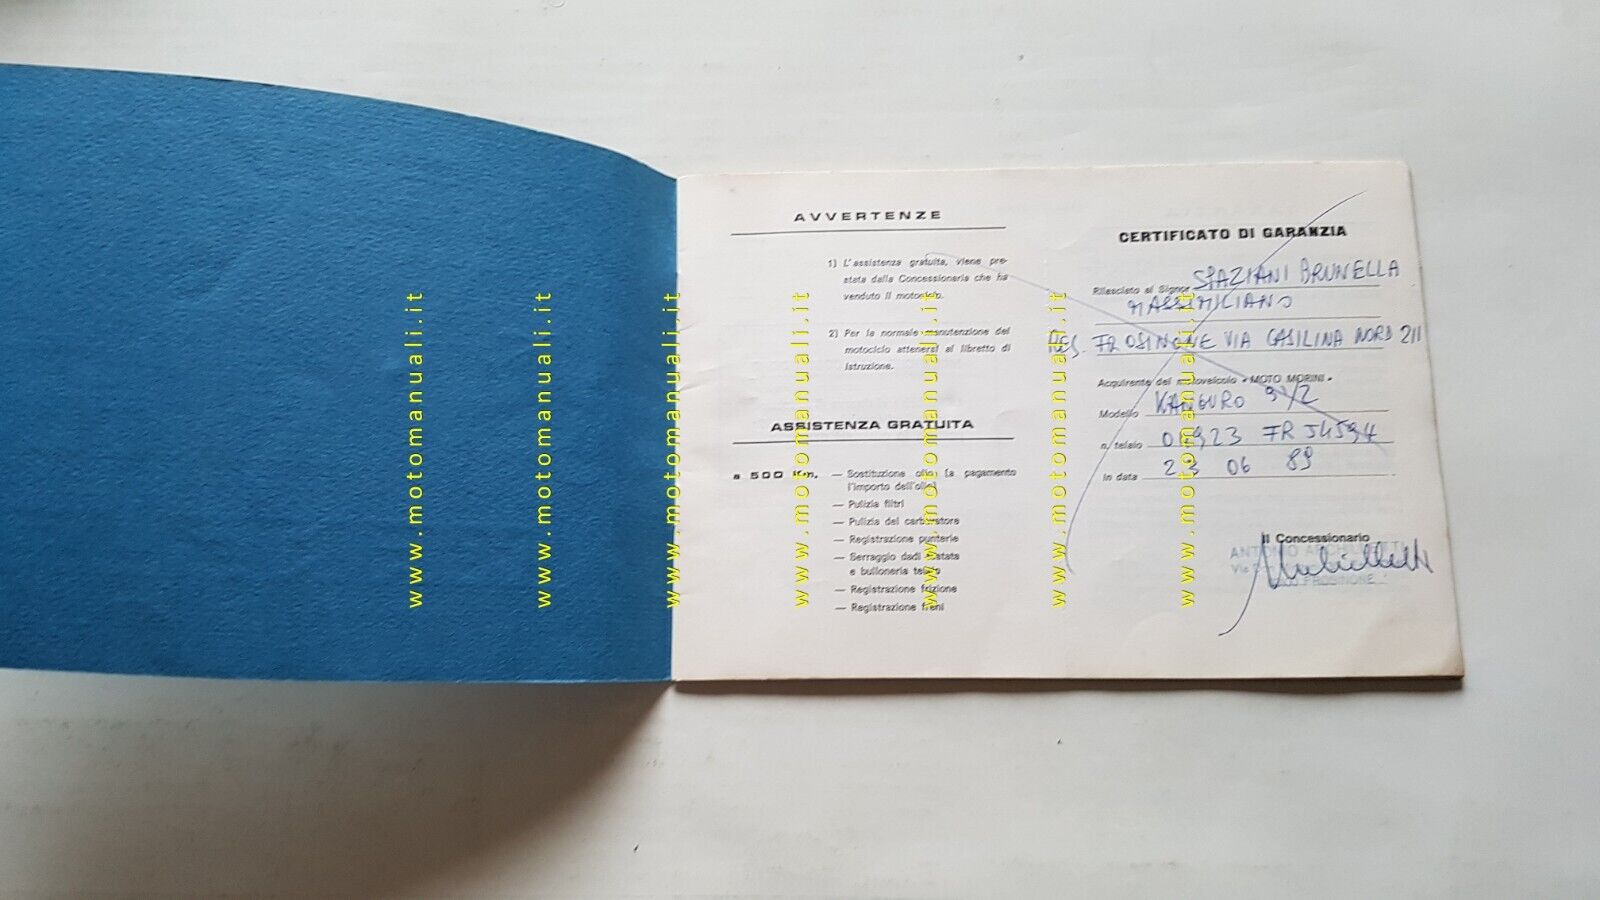 AVVERTENZE
1) L'assistenza gratuita, viene pre-
stata dalla Concessionaria che ha
venduto il motociclo.
2) Per la normale manutenzione del
motociclo attenersi al libretto di
istruzione.
ASSISTENZA GRATUITA
a 500 Km. — Sostituzione olio (a pagamento
l'importo dell'olio)
— Pulizia filtri
— Pulizia del carburatore
— Registrazione punterie
— Serraggio dadi testata
e bulloneria telaio
— Registrazione frizione
— Registrazione freni
CERTIFICATO DI GARANZIA
Rilasciato al Signor SPAZIANI BRUNELLA
MASSIMILIANO
RES. FROSINONE VIA CASILINA NORD 211
Acquirente del motoveicolo « MOTO MORINI »
Modello KANGURO
n. telaio FR 54594
in data 23 06 89
Il Concessionario
ANTONIO
Via
FROSINONE
www.motomanuali.it
www.motomanuali.it
www.motomanuali.it
www.motomanuali.it
www.motomanuali.it
www.motomanuali.it
www.motomanuali.it